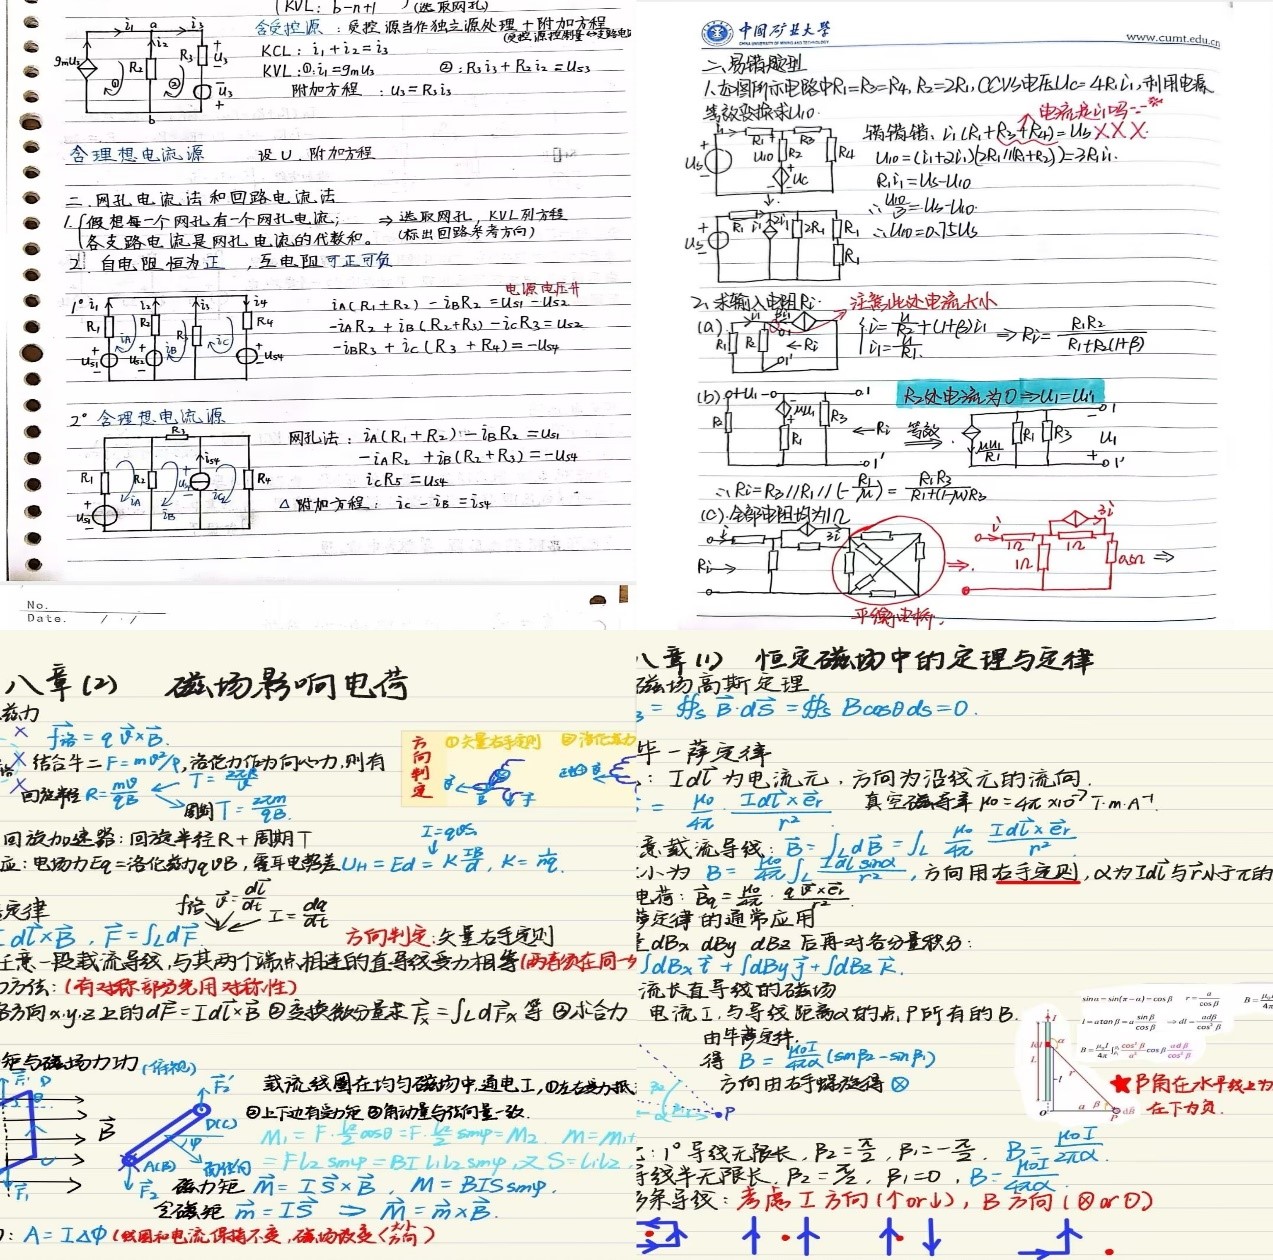 (KVL: b-n+1 (选取网孔)
含受控源：受控源当作独立源处理 + 附加方程
KCL: i₁+i₂=i₃
KVL: ①: i₁=gmu₃ ②: R₃i₃+R₂i₂=Us₃
附加方程: u₃=R₃i₃
gmu₃ i₁ a i₃ i₂ R₂ R₃ + u₃ - ① ② b
含理想电流源 设U. 附加方程
二. 网孔电流法和回路电流法
1. 假想每一个网孔有一个网孔电流; ⇒ 选取网孔, KVL列方程
各支路电流是网孔电流的代数和。 (标出回路参考方向)
2. 自电阻恒为正, 互电阻可正可负
电源电压升
1° i₁ i₂ i₃ i₄ iA(R₁+R₂) - iBR₂ = Us₁ - Us₂
-iAR₂ + iB(R₂+R₃) - iCR₃ = Us₂
-iBR₃ + iC(R₃+R₄) = -Us₄
2° 含理想电流源
网孔法: iA(R₁+R₂) - iBR₂ = Us₁
-iAR₂ + iB(R₂+R₃) = -Us₄
iCR₅ = Us₄
△ 附加方程: iC - iB = is₄
No.
Date. / /
中国矿业大学
CHINA UNIVERSITY OF MINING AND TECHNOLOGY
www.cumt.edu.cn
二、易错题型
1. 如图所示电路中R₁=R₃=R₄, R₂=2R₁, CCVS电压Uc=4R₁i₁, 利用电源
等效变换求U₁₀.
电流是i₁吗
错错错. i₁(R₁+R₃+R₄)=Us XXX.
U₁₀=(i₁+2i₁)(2R₁//(R₁+R₂))=3R₁i₁.
R₁i₁=Us-U₁₀
∴ U₁₀/3=Us-U₁₀
∴ U₁₀=0.75Us
2. 求输入电阻Ri.
注意此处电流大小
(a) i=u/R₂+(1+β)i₁ ⇒ Ri=R₁R₂/R₁+R₂(1+β)
i₁=u/R₁.
(b) R₂处电流为0 ⇒ U₁=U₁₁'
等效
∴ Ri=R₃//R₁//(-R₁/μ)=R₁R₃/R₁+(1-μ)R₃
(c) 全部电阻均为1Ω
Ri→ 3i 1Ω 1Ω 1Ω 3i 0.5Ω ⇒
平衡电桥.
八章(2) 磁场影响电荷
f洛=qv×B.
结合牛二 F=mv²/R, 洛伦兹力作为向心力, 则有
回旋半径 R=mv/qB T=2πR/v 周期 T=2πm/qB.
方向判定 ①矢量右手定则 ②洛伦兹力
回旋加速器: 回旋半径R + 周期T
I=qvS
应: 电场力Eq=洛伦兹力qvB, 霍耳电势差 UH=Ed=K IB/d, K=1/nq.
f洛 v=dl/dt I=dq/dt
定律
Idl×B, F=∫L dF 方向判定: 矢量右手定则
任意一段载流导线, 与其两个端点相连的直导线受力相等(两者须在同一
方法: (有对称部分先用对称性)
方向x.y.z上的dF=Idl×B ②变换微分量求Fx=∫L dFx等 ③求合力
矩与磁场力功 (俯视)
载流线圈在均匀磁场中, 通电I, ①左右受力抵
②上下边有受力矩 ③角动量与法向量一致.
M₁=F·l₂/2 cosθ=F·l₂/2 sinφ=M₂. M=M₁+
=Fl₂ sinφ=BIl₁l₂ sinφ, 又S=l₁l₂.
磁力矩 M=IS×B, M=BIS sinφ.
令磁矩 m=IS ⇒ M=m×B.
: A=IΔΦ (线圈和电流保持不变, 磁场改变(大小/方向)
八章(1) 恒定磁场中的定理与定律
磁场高斯定理
= ∯s B·dS=∯s Bcosθds=0.
毕-萨定律
: Idl为电流元, 方向为沿线元的流向.
= μ₀/4π · Idl×er/r² 真空磁导率 μ₀=4π×10⁻⁷ T·m·A⁻¹.
意载流导线: B=∫L dB=∫L μ₀/4π Idl×er/r²
小为 B=μ₀/4π ∫L Idl sinα/r², 方向用右手定则, α为Idl与r小于π的
电荷: Bq=μ₀/4π · qv×er/r².
萨定律的通常应用
dBx dBy dBz 后再对各分量积分:
∫dBx i+∫dBy j+∫dBz k.
流长直导线的磁场
电流I, 与导线距离a的点, P所有的B.
由毕萨定律
得 B=μ₀I/4πa (sinβ₂-sinβ₁)
方向由右手螺旋得⊗
sinα=sin(π-α)=cosβ r=a/cosβ
l=a tanβ=a sinβ/cosβ ⇒ dl=adβ/cos²β
★β角在水平线上为
在下为负.
: 1° 导线无限长, β₂=π/2, β₁=-π/2. B=μ₀I/2πa.
导线半无限长, β₂=π/2, β₁=0, B=μ₀I/4πa.
多条导线: 考虑I方向(↑or↓), B方向(⊗or⊙)